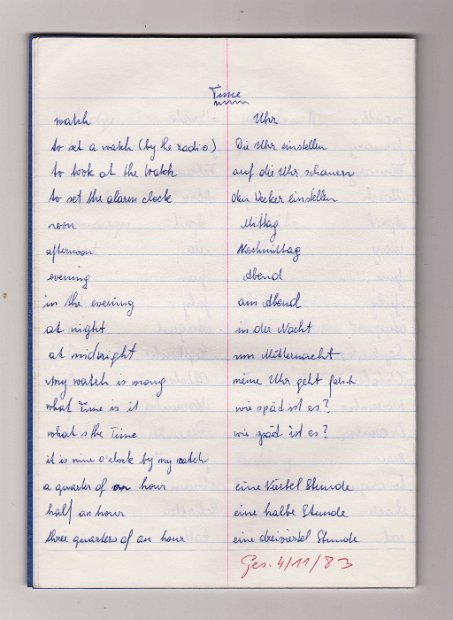 Time
watch Uhr
to set a watch (by the radio) Die Uhr einstellen
to look at the watch auf die Uhr schauen
to set the alarm clock den Wecker einstellen
noon Mittag
afternoon Nachmittag
evening Abend
in the evening am Abend
at night in der Nacht
at midnight um Mitternacht
my watch is wrong meine Uhr geht falsch
what time is it wie späd ist es?
what s the Time wie späd ist es?
it is nine o'clock by my watch
a quarter of an hour eine Viertel Stunde
half an hour eine halbe Stunde
three quarters of an hour eine dreiviertel Stunde
Ges. 4/11/83